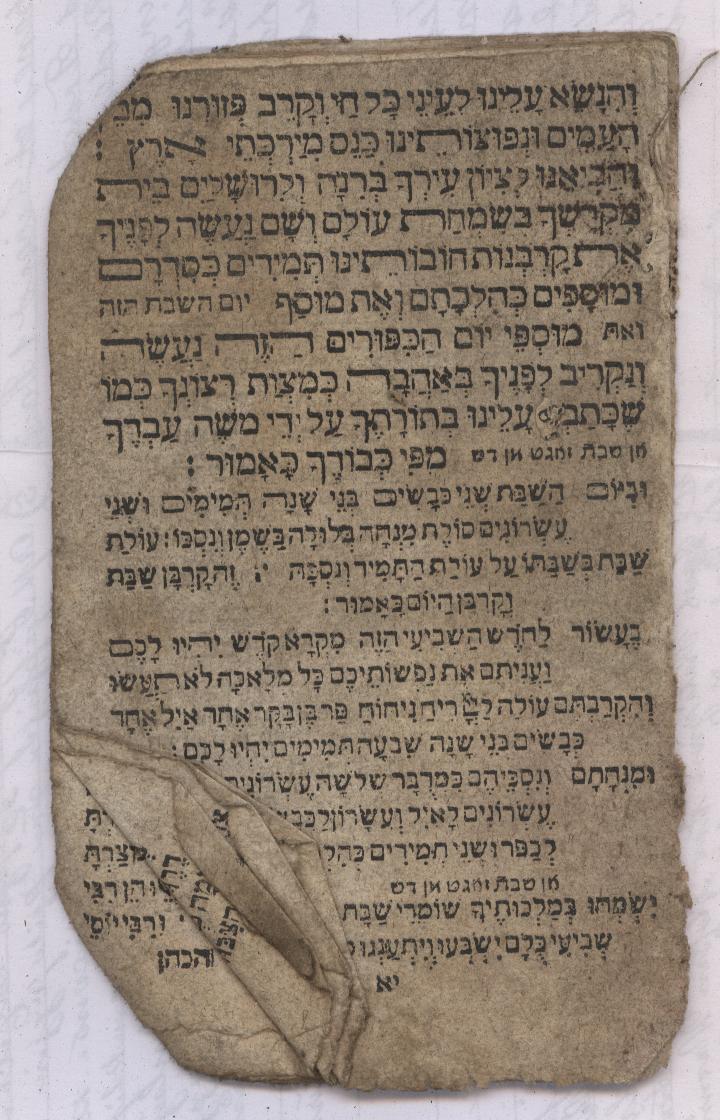 וְהִנָּשֵׂא עָלֵינוּ לְעֵינֵי כָּל חַי וְקָרֵב פְּזוּרֵנוּ מִבֵּי
הָעַמִּים וּנְפוּצוֹתֵינוּ כַּנֵּס מִיַּרְכְּתֵי אָרֶץ :
וַהֲבִיאֵנוּ לְצִיּוֹן עִירְךָ בְּרִנָּה וְלִרוּשָׁלַיִם בֵּית
מִקְדָּשְׁךָ בְּשִׂמְחַת עוֹלָם וְשָׁם נַעֲשֶׂה לְפָנֶיךָ
אֶת קָרְבְּנוֹת חוֹבוֹתֵינוּ תְּמִידִים כְּסִדְרָם
וּמוּסָפִים כְּהִלְכָתָם וְאֶת מוּסַף יום השבת הזה
ואת מוּסְפֵי יוֹם הַכִּפּוּרִים הַזֶּה נַעֲשֶׂה
וְנַקְרִיב לְפָנֶיךָ בְּאַהֲבָה כְּמִצְוַת רְצוֹנְךָ כְּמוֹ
שֶׁכָּתַבְ עָלֵינוּ בְּתוֹרָתֶךָ עַל יְדֵי מֹשֶׁה עַבְדֶּךָ
מִפִּי כְבוֹדֶךָ כָּאָמוּר : אן שבת זאגט מן דש
וּבְיוֹם הַשַּׁבָּת שְׁנֵי כְבָשִׂים בְּנֵי שָׁנָה תְּמִימִים וּשְׁנֵי
עֶשְׂרוֹנִים סוֹלֶת מִנְחָה בְּלוּלָה בַשֶּׁמֶן וְנִסְכּוֹ : עוֹלַת
שַׁבַּת בְּשַׁבַּתּוֹ עַל עוֹלַת הַתָּמִיד וְנִסְכָּהּ : זֶה קָרְבַּן שַׁבָּת
וְקָרְבַּן הַיּוֹם כָּאָמוּר :
בֶּעָשׂוֹר לַחֹדֶשׁ הַשְּׁבִיעִי הַזֶּה מִקְרָא קֹדֶשׁ יִהְיוּ לָכֶם
וְעִנִּיתֶם אֶת נַפְשׁוֹתֵיכֶם כָּל מְלָאכָה לֹא תַעֲשׂוּ
וְהִקְרַבְתֶּם עוֹלָה לַיְיָ רֵיחַ נִיחוֹחַ פַּר בֶּן בָּקָר אֶחָד אַיִל אֶחָד
כְּבָשִׂים בְּנֵי שָׁנָה שִׁבְעָה תְּמִימִים יִהְיוּ לָכֶם :
וּמִנְחָתָם וְנִסְכֵּיהֶם כִּמְדֻבָּר שְׁלֹשָׁה עֶשְׂרוֹנִים
עֶשְׂרוֹנִים לָאַיִל וְעִשָּׂרוֹן לַכֶּבֶ
לְכַפֵּר וּשְׁנֵי תְמִידִים כְּהִלְ
אן שבת זאגט מן דש
יִשְׂמְחוּ בְמַלְכוּתֶךָ שׁוֹמְרֵי שַׁבָּת
שְׁבִיעִי כֻּלָּם יִשְׂבְּעוּ וְיִתְעַנְּגוּ
יא
וְרַבִּי יוֹסֵי
והכהן